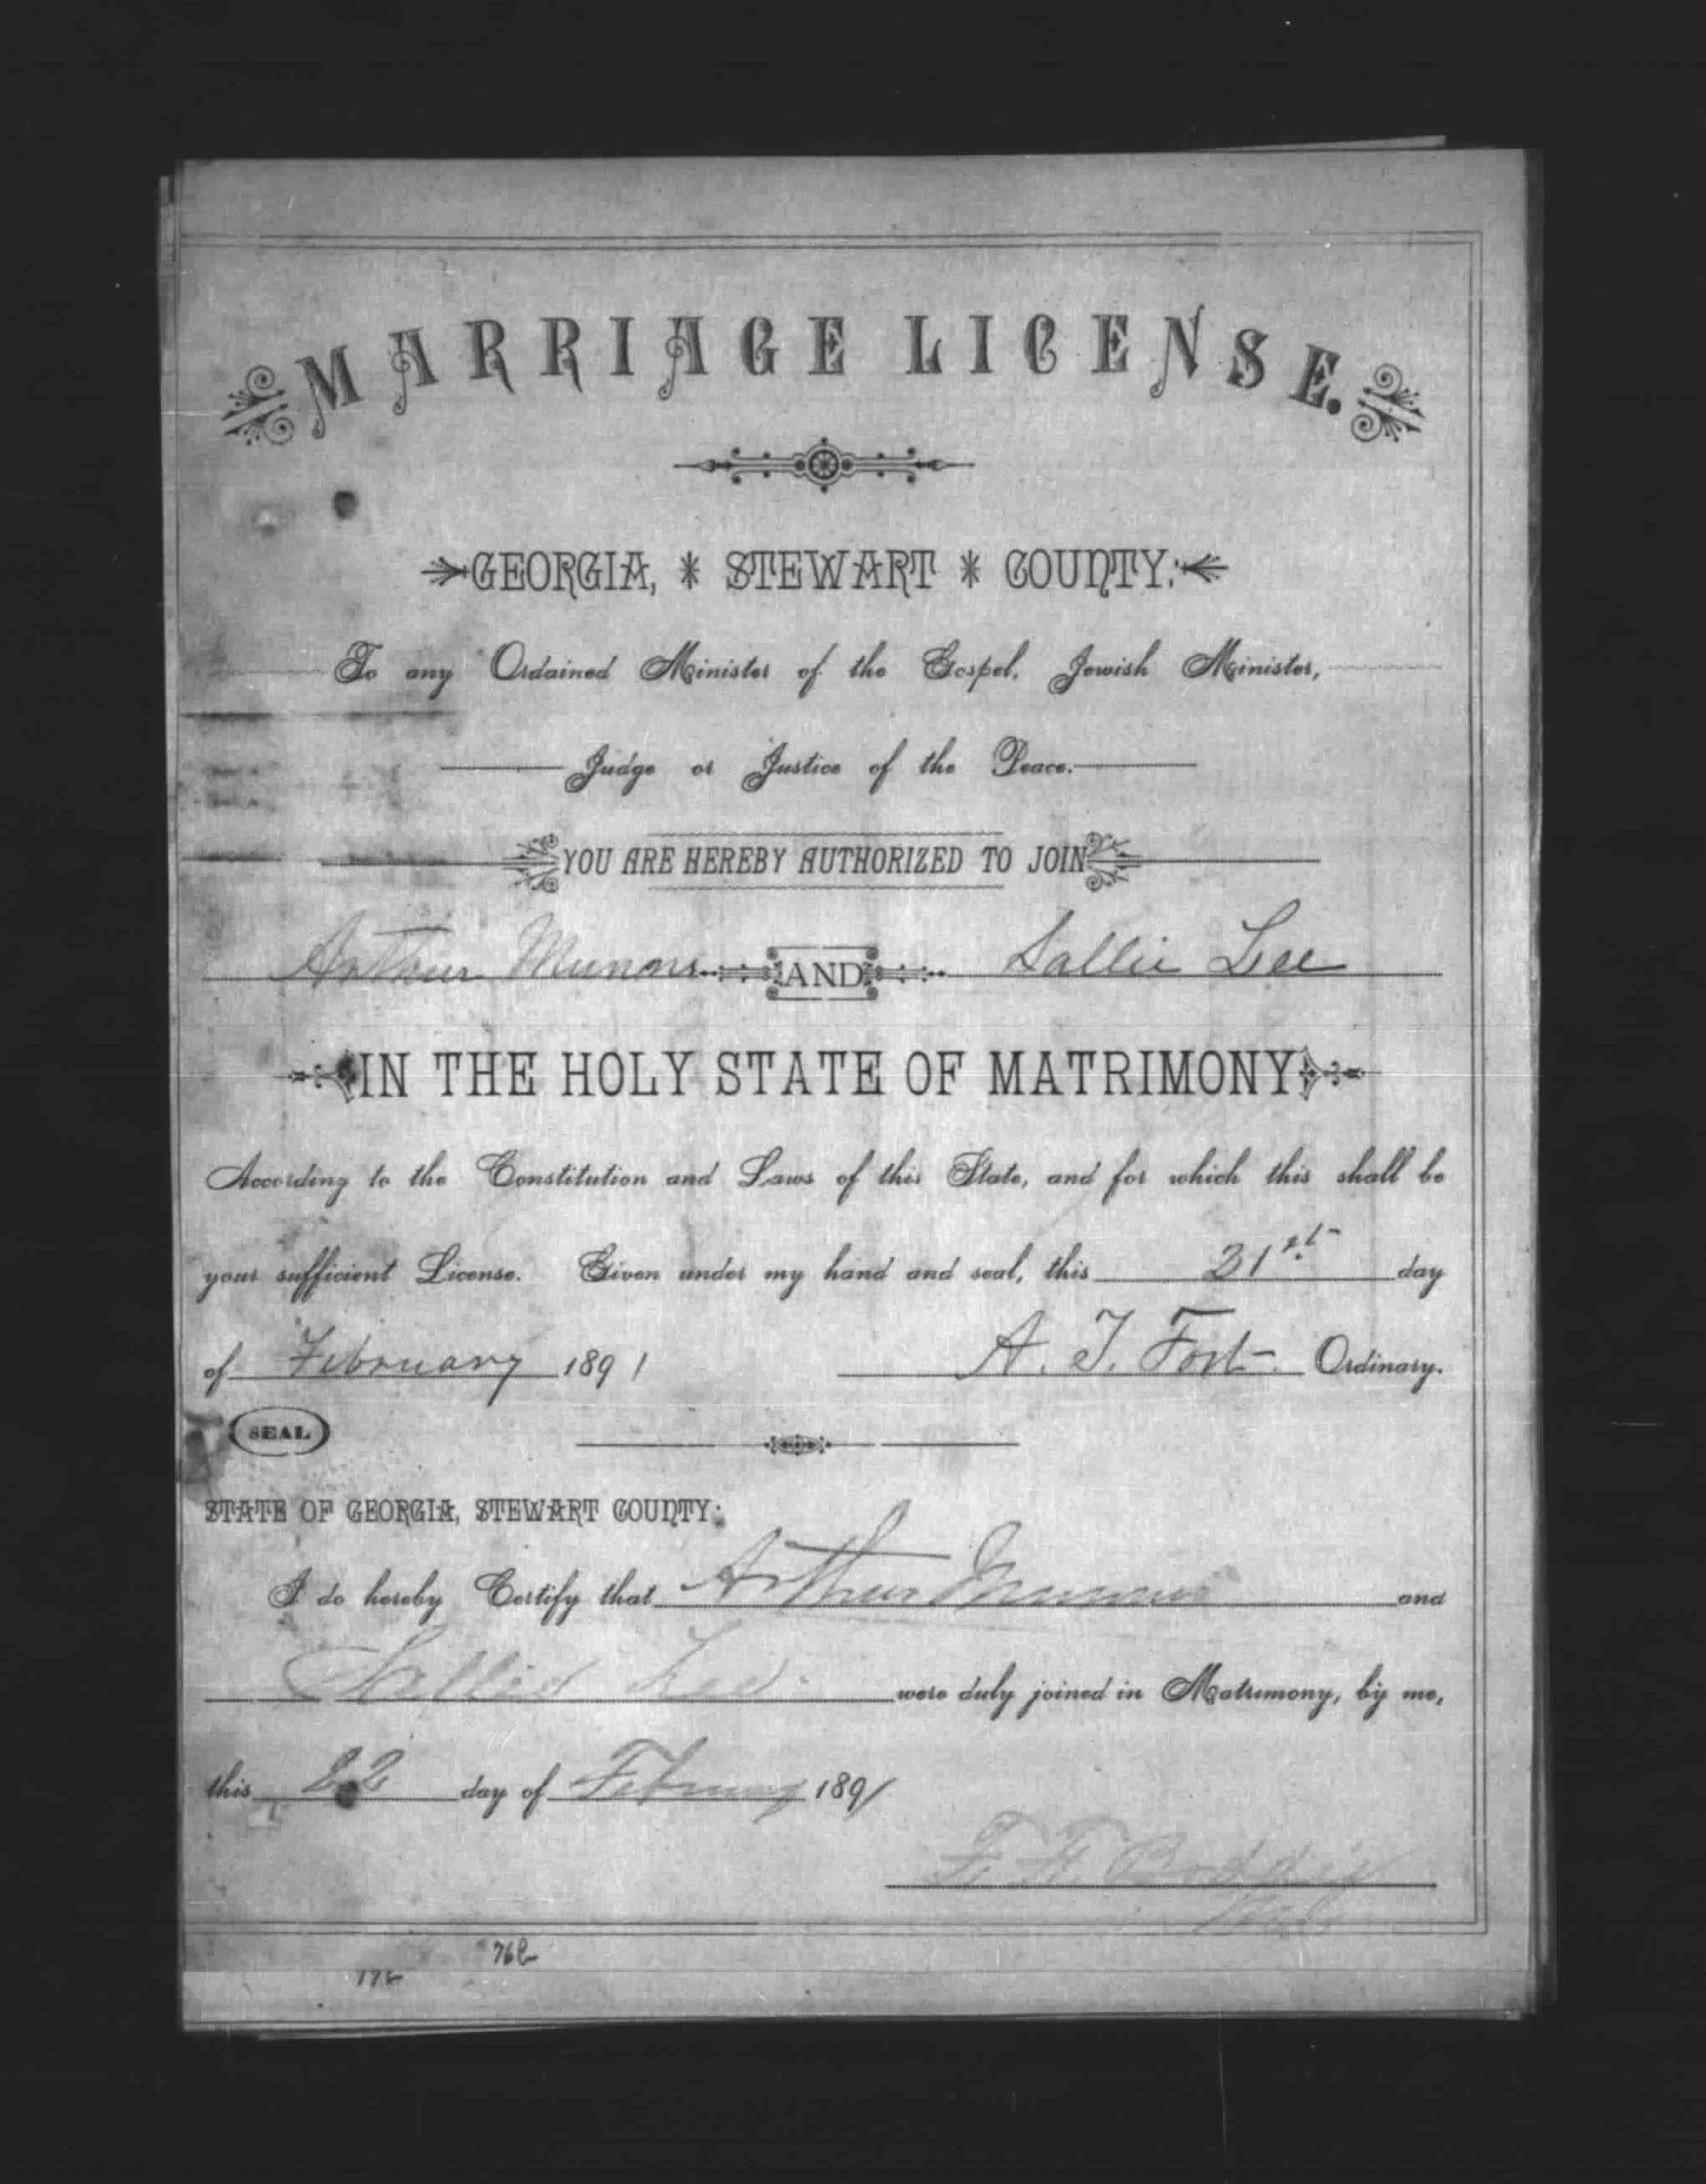 MARRIAGE LICENSE.
GEORGIA, * STEWART * COUNTY:
To any Ordained Minister of the Gospel, Jewish Minister,
Judge or Justice of the Peace.
YOU ARE HEREBY AUTHORIZED TO JOIN
Arthur AND Sallie Lee
IN THE HOLY STATE OF MATRIMONY
According to the Constitution and Laws of this State, and for which this shall be
your sufficient License. Given under my hand and seal, this 21st day
of February 1891 A. T. Fort Ordinary.
SEAL
STATE OF GEORGIA, STEWART COUNTY:
I do hereby Certify that Arthur and
Sallie Lee were duly joined in Matrimony, by me,
this 22 day of February 1891
F. F.